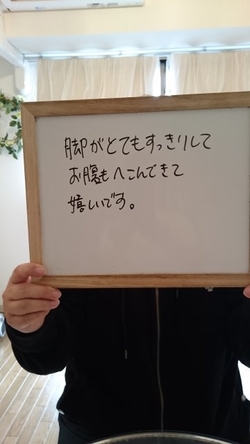 脚がとてもすっきりして
お腹もへこんできて
嬉しいです。